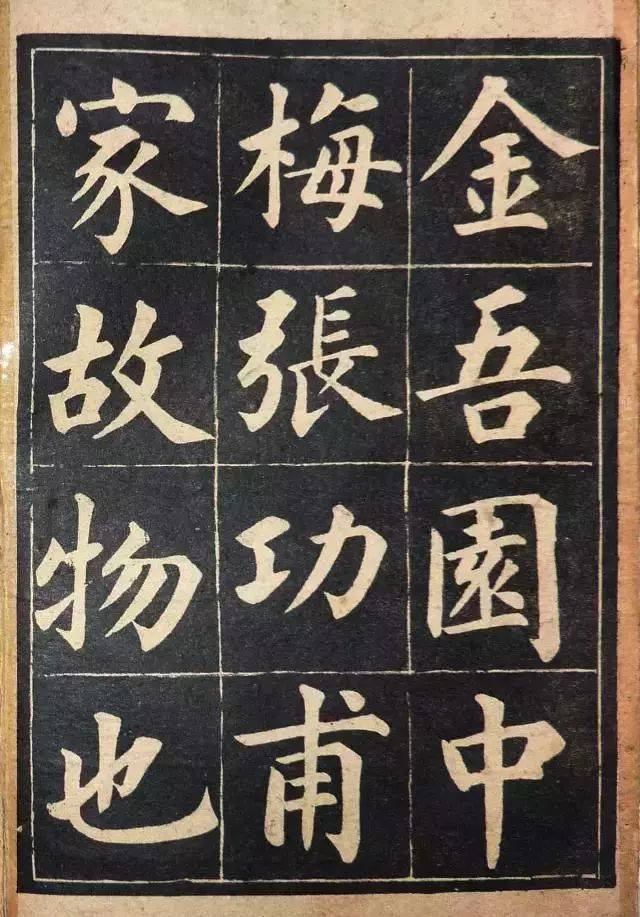 金吾園中
梅張功甫
家故物也